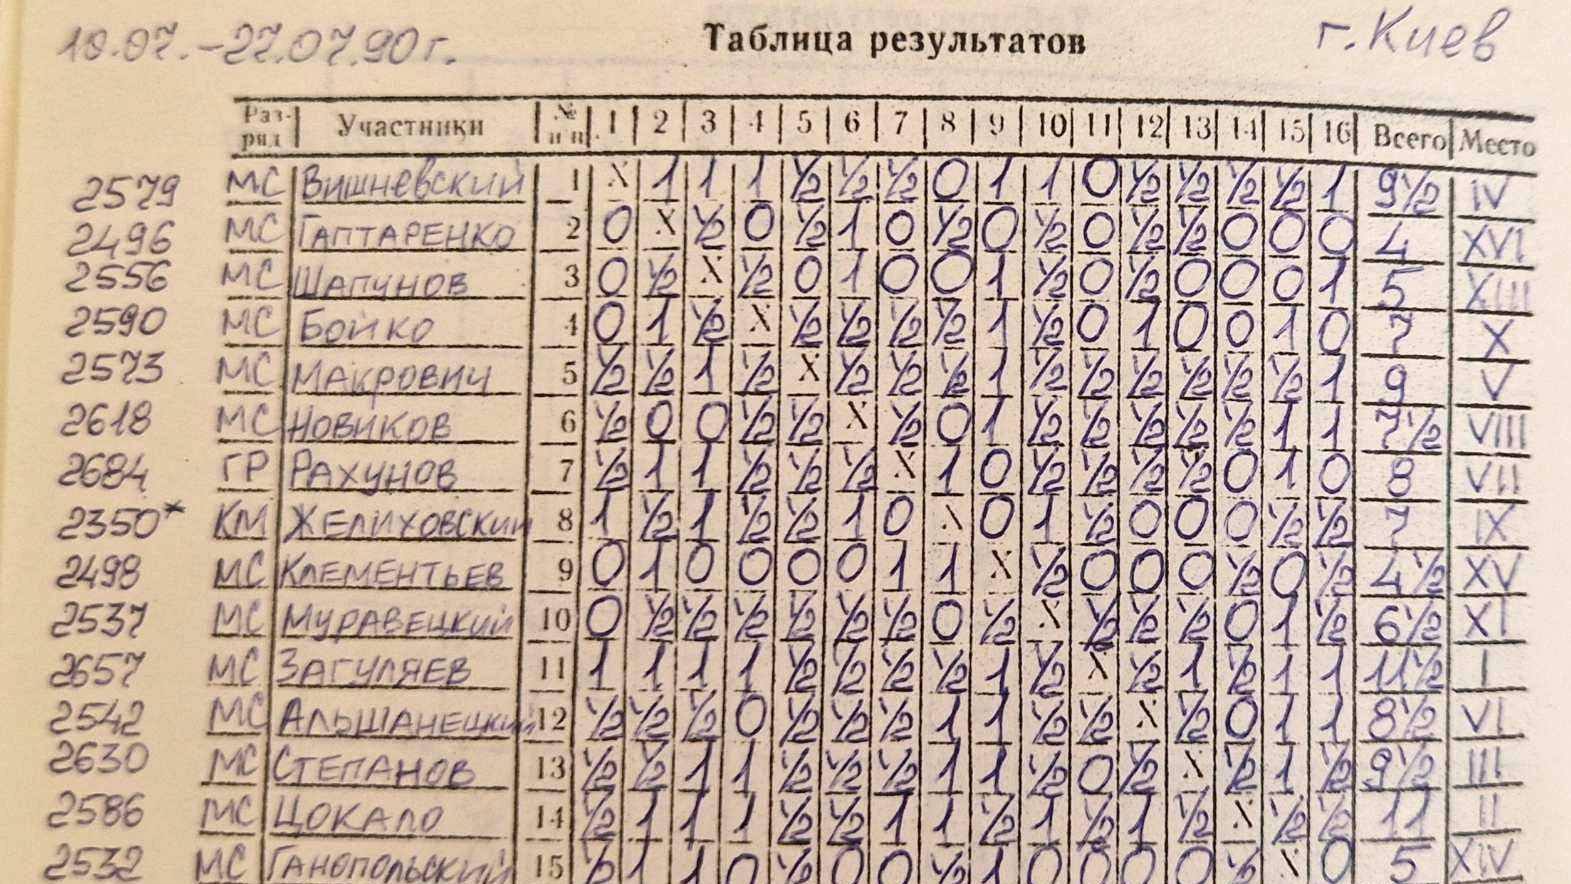 10.07.-27.07.90г. Таблица результатов г. Киев
Раз-ряд Участники № п п 1 2 3 4 5 6 7 8 9 10 11 12 13 14 15 16 Всего Место
2579 МС Вишневский 1 X 1 1 1 ½ ½ ½ 0 1 1 0 ½ ½ ½ ½ 1 9½ IV
2496 МС Гаптаренко 2 0 X ½ 0 ½ 1 0 ½ 0 ½ 0 ½ ½ 0 0 0 4 XVI
2556 МС Шапунов 3 0 ½ X ½ 0 1 0 0 1 ½ 0 ½ 0 0 0 1 5 XIII
2590 МС Бойко 4 0 1 ½ X ½ ½ ½ ½ 1 ½ 0 1 0 0 1 0 7 X
2573 МС Макрович 5 ½ ½ 1 ½ X ½ ½ ½ 1 ½ ½ ½ ½ ½ ½ 1 9 V
2618 МС Новиков 6 ½ 0 0 ½ ½ X ½ 0 1 ½ ½ ½ ½ ½ 1 1 7½ VIII
2684 ГР Рахунов 7 ½ 1 1 ½ ½ ½ X 1 0 ½ ½ ½ ½ 0 1 0 8 VII
2350* КМ Желиховский 8 1 ½ 1 ½ ½ 1 0 X 0 1 ½ 0 0 0 ½ ½ 7 IX
2498 МС Клементьев 9 0 1 0 0 0 0 1 1 X ½ 0 0 0 ½ 0 ½ 4½ XV
2537 МС Муравецкий 10 0 ½ ½ ½ ½ ½ ½ 0 ½ X ½ ½ ½ 0 1 ½ 6½ XI
2657 МС Загуляев 11 1 1 1 1 ½ ½ ½ ½ 1 ½ X ½ 1 ½ 1 1 11½ I
2542 МС Альшанецкий 12 ½ ½ ½ 0 ½ ½ ½ 1 1 ½ ½ X ½ 0 1 1 8½ VI
2630 МС Степанов 13 ½ ½ 1 1 ½ ½ ½ 1 1 ½ 0 ½ X ½ 1 ½ 9½ III
2586 МС Цокало 14 ½ 1 1 1 ½ ½ 1 1 ½ 1 ½ 1 ½ X ½ ½ 11 II
2532 МС Ганопольский 15 ½ 1 1 0 ½ 0 0 ½ 1 0 0 0 0 ½ X 0 5 XIV